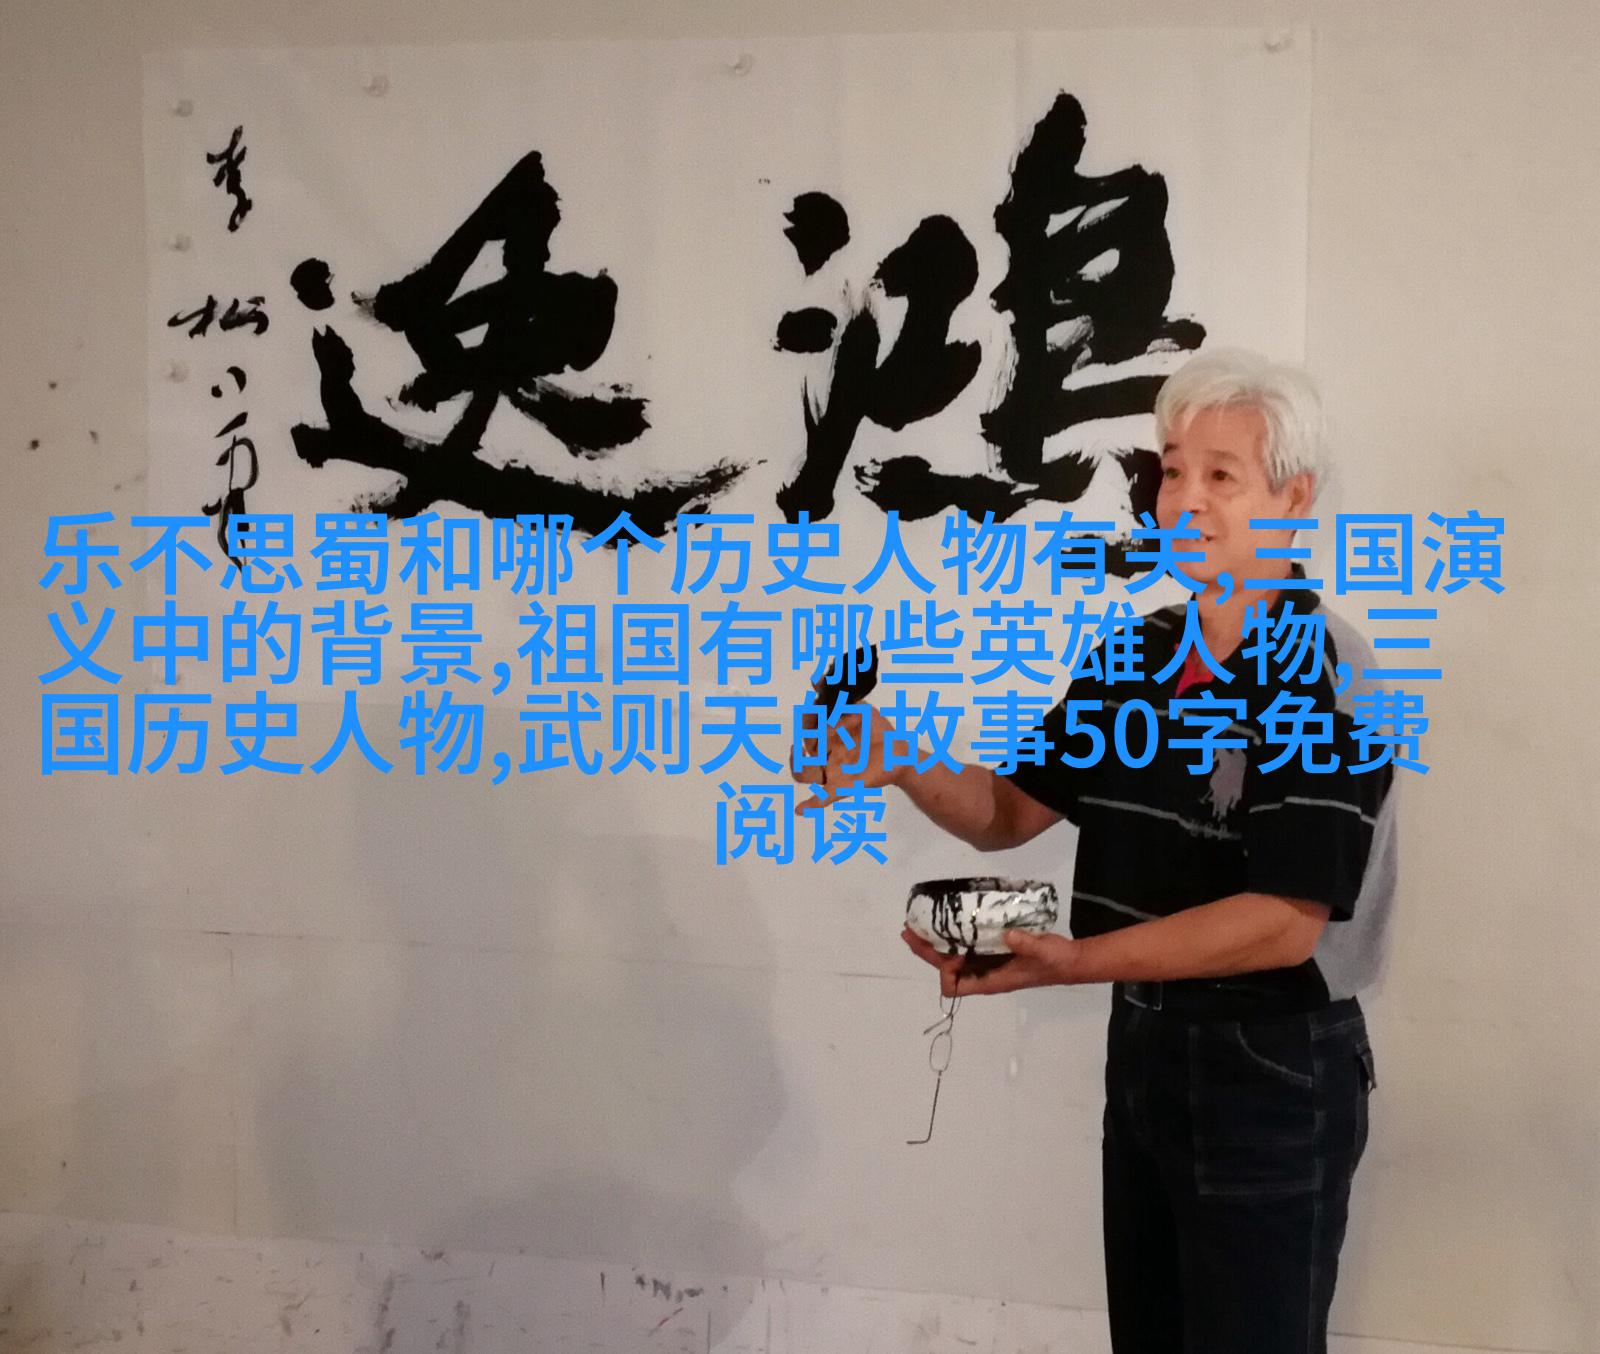 鸿逸
李松
乐不思蜀和哪个历史人物有关,三国演
义中的背景,祖国有哪些英雄人物,三
国历史人物,武则天的故事50字免费
阅读